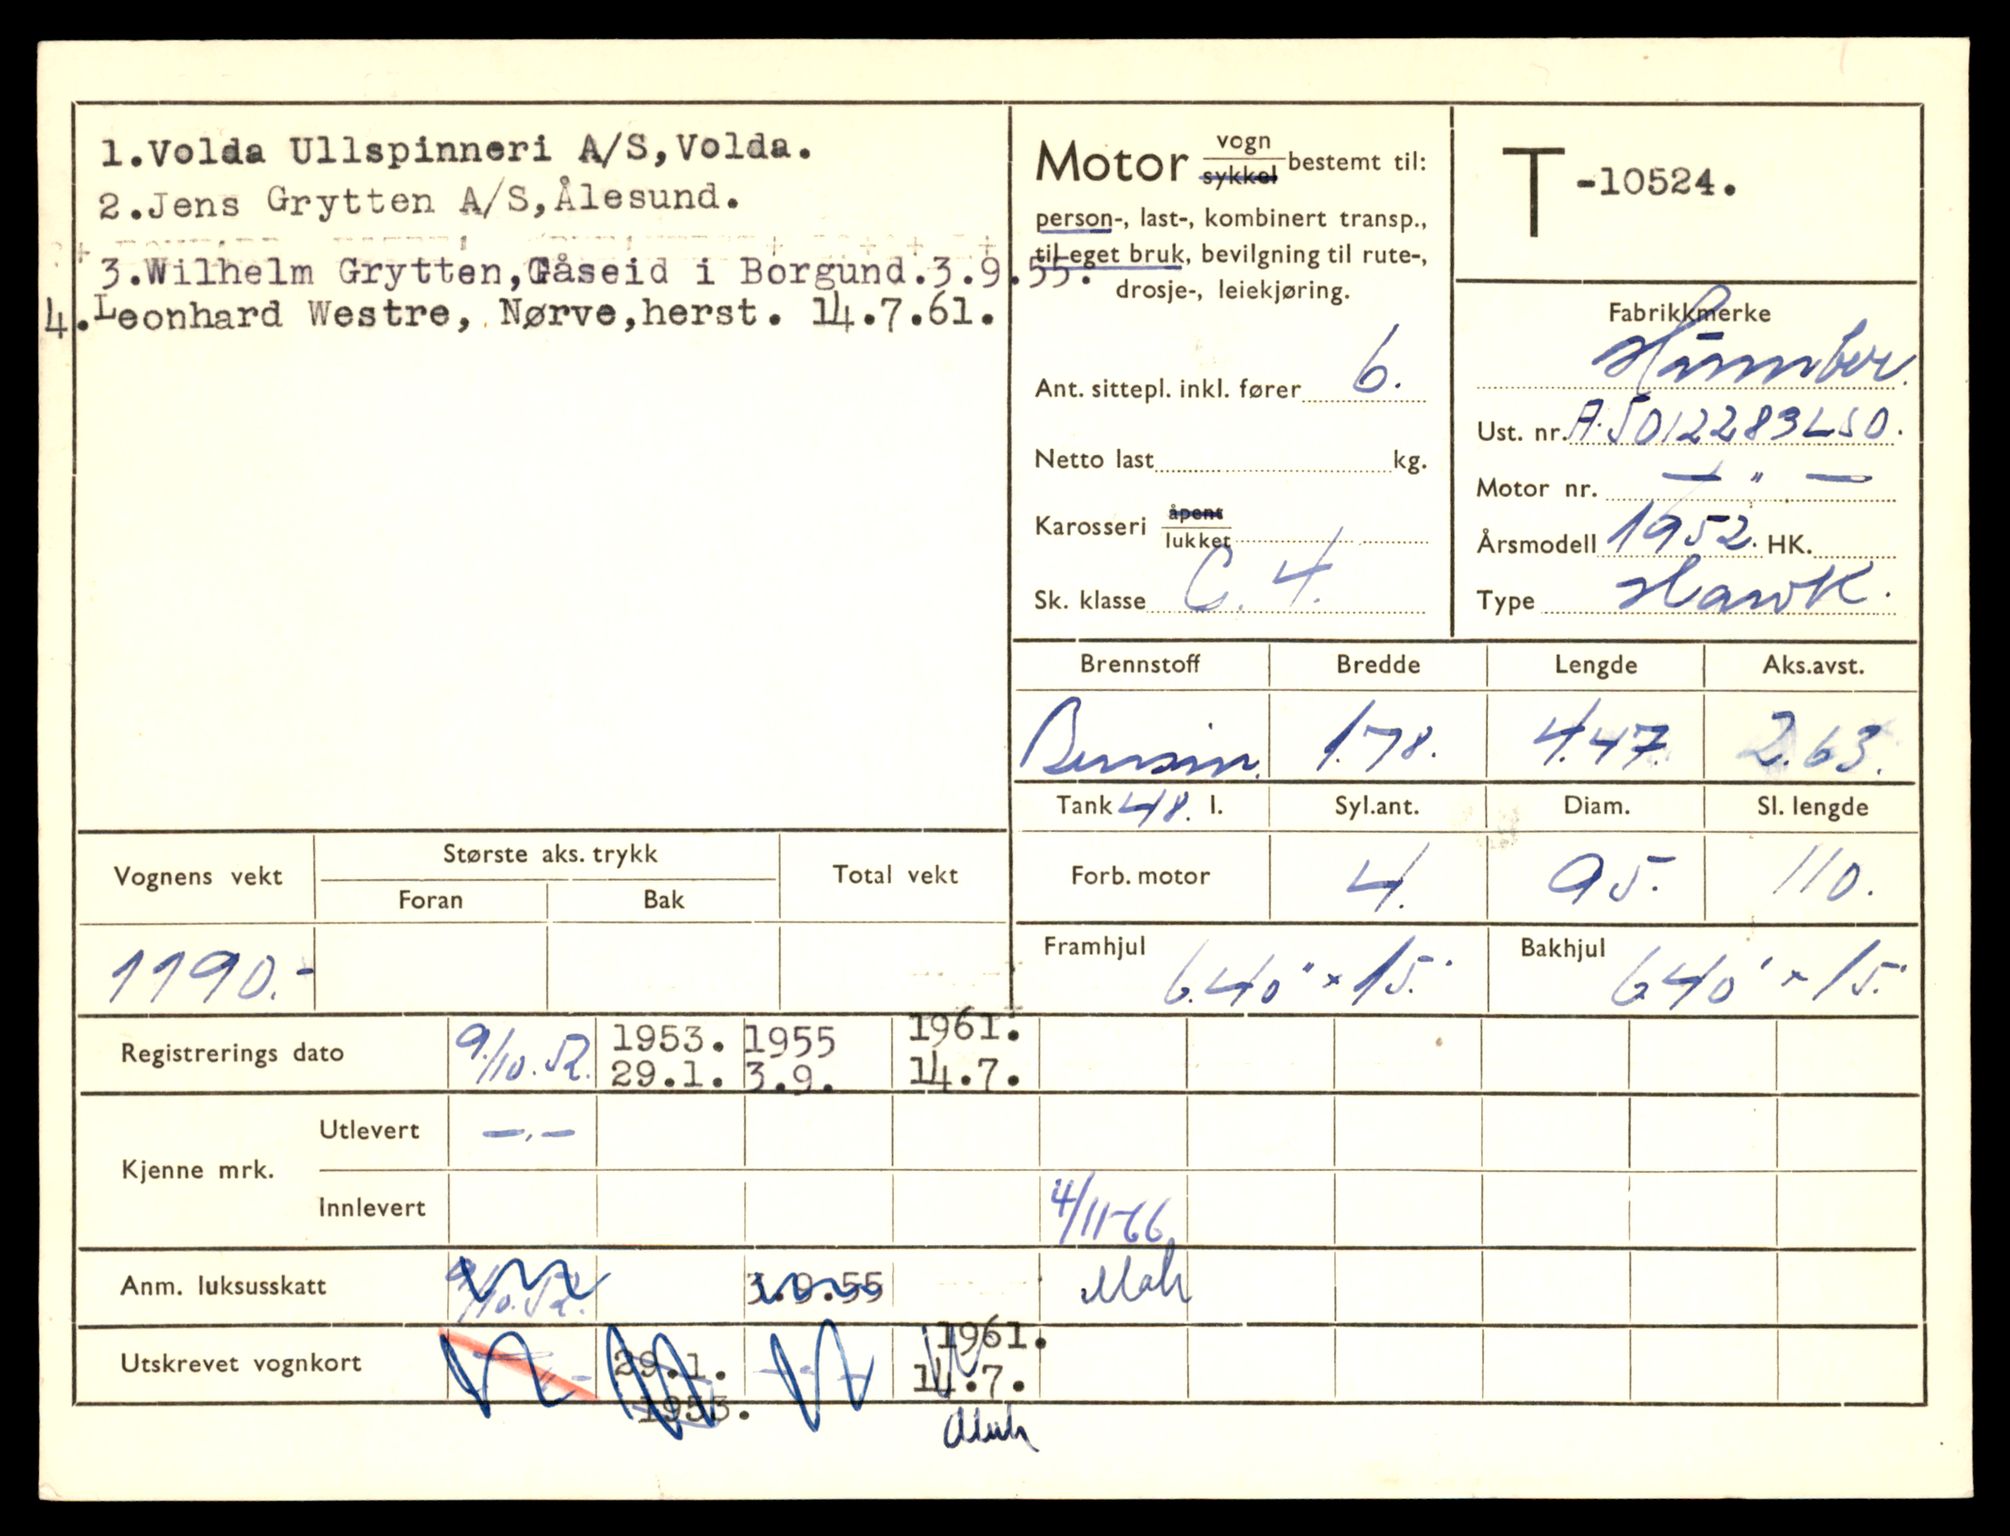 1.Volda Ullspinneri A/S,Volda.
2.Jens Grytten A/S,Ålesund.
3.Wilhelm Grytten,Gåseid i Borgund.3.9.55.
4.Leonhard Westre, Nørve,herst. 14.7.61.
Motor vogn
sykkel bestemt til:
person-, last-, kombinert transp.,
til eget bruk, bevilgning til rute-,
drosje-, leiekjøring.
Ant. sittepl. inkl. fører 6.
Netto last kg.
Karosseri åpent
lukket
Sk. klasse C. 4.
T -10524.
Fabrikkmerke
Humber.
Ust. nr. A.5012283LSO.
Motor nr. — " —
Årsmodell 1952. HK.
Type Hawk.
Brennstoff Bredde Lengde Aks.avst.
Bensin. 1.78. 4.47. 2.63.
Tank 48. l. Syl.ant. Diam. Sl. lengde
Forb. motor 4. 95. 110.
Framhjul 6.40" x 15." Bakhjul 640" x 15."
Vognens vekt Største aks. trykk Total vekt
Foran Bak
1190.-
Registrerings dato 9/10.52. 1953. 29.1. 1955 3.9. 1961. 14.7.
Kjenne mrk. Utlevert —.—
Innlevert 4/11-66
Anm. luksusskatt 9/10.52. 3.9.55
Utskrevet vognkort — " — 29.1. 1953. 1961. 14.7.